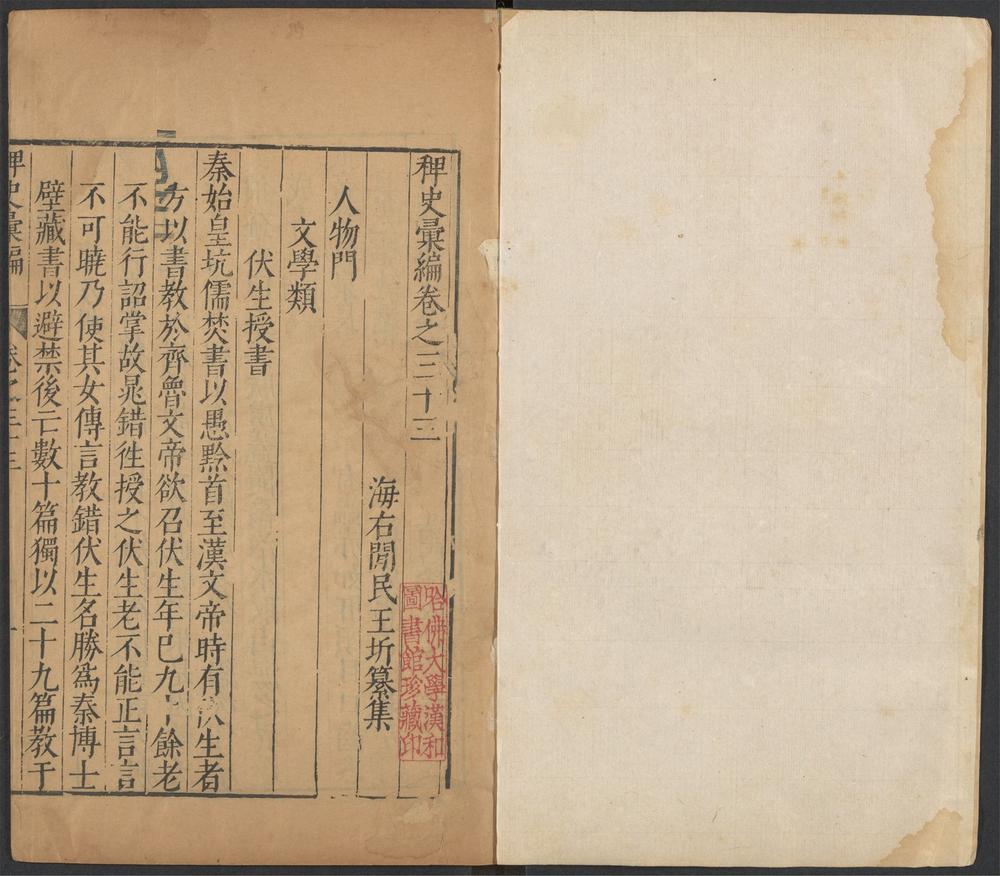 稗史彙編卷之三十三
海右閒民王圻纂集
人物門
文學類
伏生授書
秦始皇坑儒焚書以愚黔首至漢文帝時有伏生者
方以書教於齊魯文帝欲召伏生年已九十餘老
不能行詔掌故晁錯徃授之伏生老不能正言言
不可曉乃使其女傳言教錯伏生名勝爲秦博士
壁藏書以避禁後亡數十篇獨以二十九篇教于
稗史彙編
卷之三十三
一
哈佛大學漢和
圖書館珍藏印